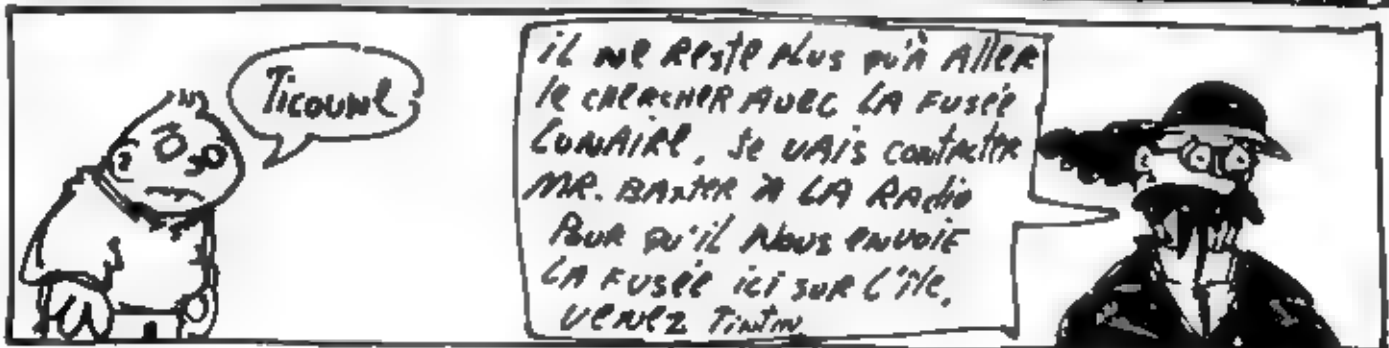 Ticoune
il ne reste plus qu'à aller
le chercher avec la fusée
lunaire, je vais contacter
Mr. Baxter à la radio
pour qu'il nous envoie
la fusée ici sur l'île,
venez Tintin